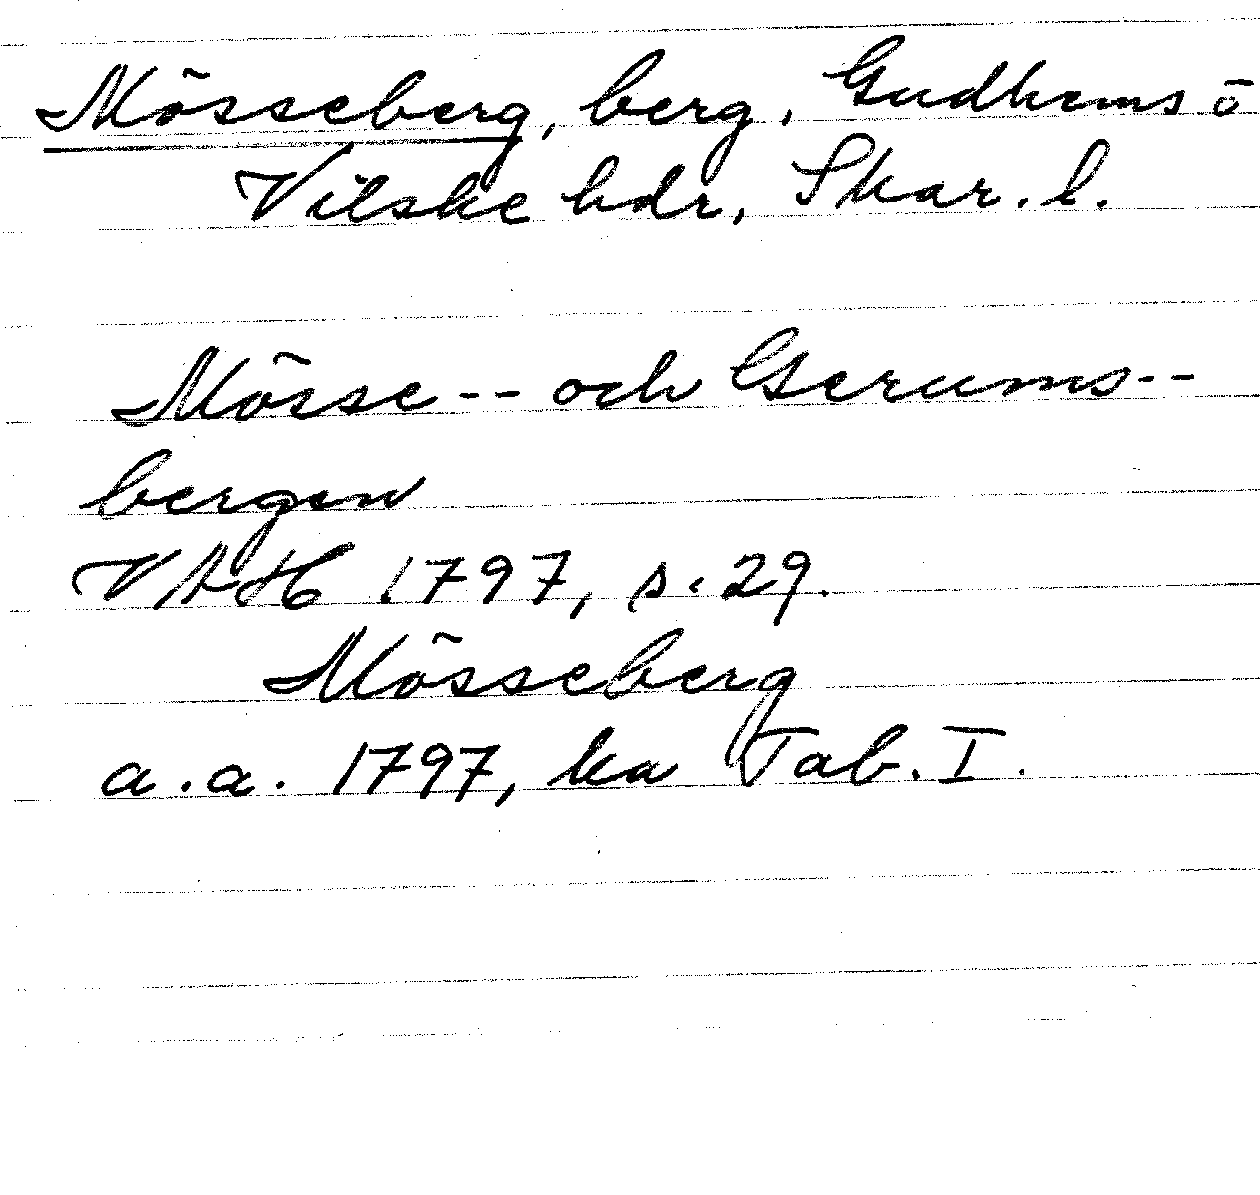 Mösseberg, berg, Gudhems o
Vilske hdr, Skar. l.
Mösse-- och Gerums--
bergen
VAH 1797, s. 29.
Mösseberg
a.a. 1797, ka Tab. I.